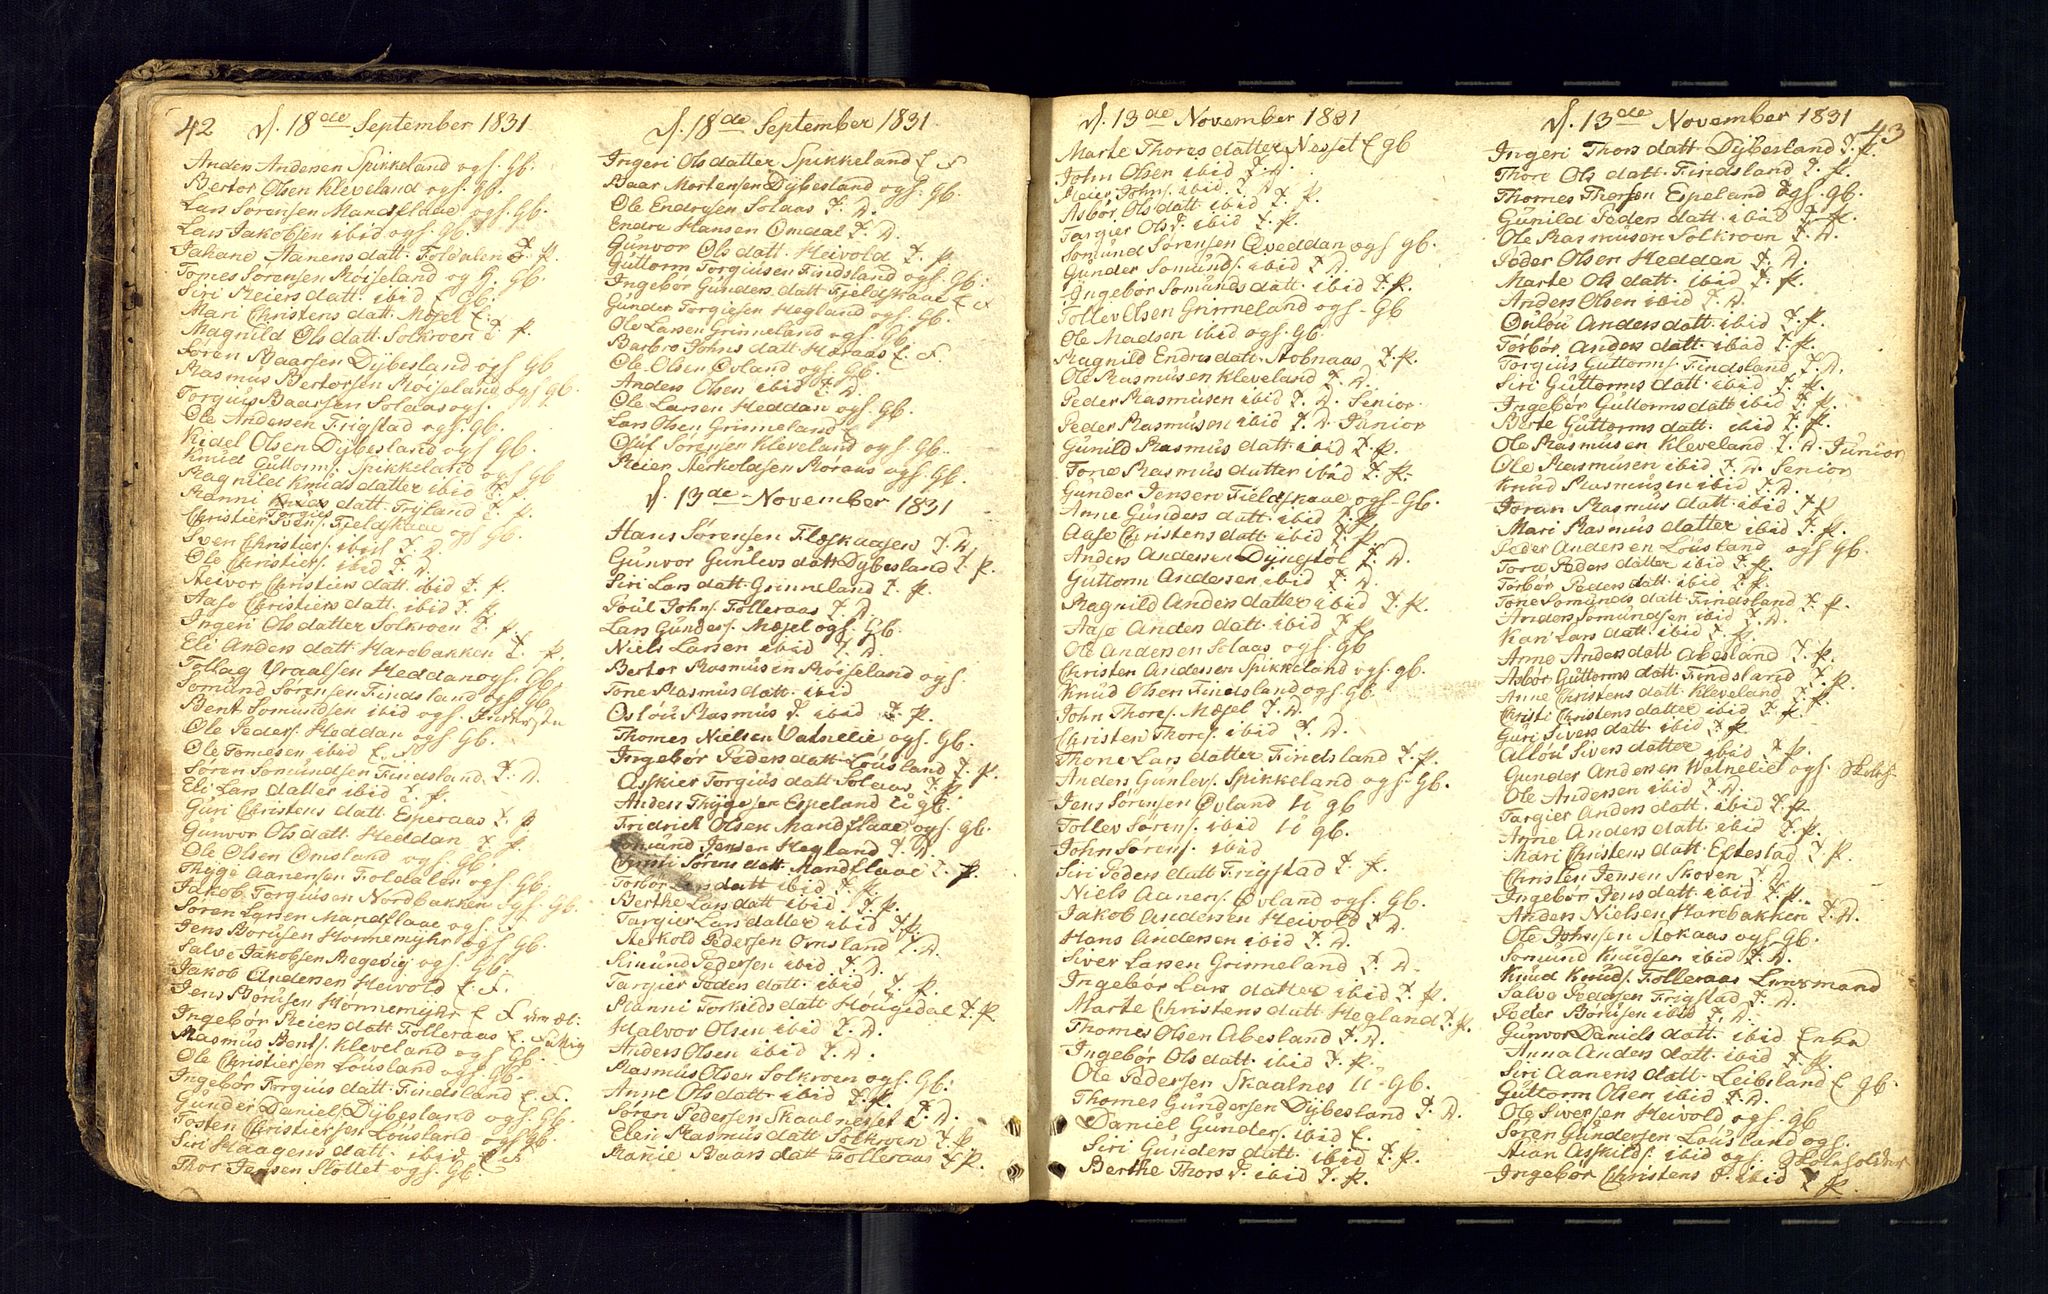 42 d. 18de September 1831
Anders Andersen Spikkeland ogs. Gb.
Bertor Olsen Kleveland ogs. Gb.
Lars Sørensen Mandflaae ogs. Gb.
Lars Jakobsen ibid ogs. Gb.
Aanens datt. Foldalen T. P.
Tomes Sørensen Røiseland og H. Gb.
Siri Reiers datt. ibid E Gb.
Mari Christens datt. Mæsel E.
Magnild Ols datt. Solkroen T. P.
Søren Baarsen Dÿbesland ogs Gb
Rasmus Bertorsen Røiseland ogs Gb.
Torgius Baarsen Solaas ogs.
Ole Andersen Frigstad ogs. Gb.
Kidel Olsen Dÿbesland ogs. Gb.
Knud Guttorms. Spikkeland ogs Gb
Ragnild Knuds datter ibid T. P.
Ranni Torgies datt. Frÿland T. P.
Christier Svens. Fieldskaae
Sven Christiers. ibid T. D. Gb.
Ole Christiers. ibid T. D.
Reivor Christiers datt. ibid T. P.
Aase Christiers datt. ibid T. P.
Ingeri Ols datter Solkroen T. P.
Eli Anders datt. Harebakken T. P.
Tollag Vraalsen Heddan ogs. Gb.
Somund Sørensen Findsland ogs Gb
Bent Somundsen ibid ogs.
Ole Peders. Heddan ogs Gb.
Ole Tomesen ibid E. F.
Søren Somundsen Findsland T. D.
Eli Lars datter ibid T. P.
Guri Christens datt. Esperaas T. P
Gunvor Ols datt. Heddan T. P
Ole Olsen Omsland ogs. Gb
Thÿge Aanensen Foldalen ogs. Gb.
Jakob Torguisen Nordbakken ogs Gb.
Søren Larsen Mandflaae ogs. F
Jens Borusen Hønnemÿhr ogs Gb.
Salve Jakobsen Regevig ogs. Gb.
Jakob Andersen Heivold E. F.
Jens Borusen Hønnemÿhr E F
Ingebor Reiers datt. Tolleraas E.
Rasmus Bents. Kleveland ogs Gb
Ole Christiersen Lousland ogs. Gb.
Ingebor Torguis datt. Findsland E. F.
Gunder Daniels. Dÿbesland ogs. Gb.
Tosten Christiersen Lousland ogs Gb.
Siri Haagens datt. ibid E F
Thor Jansen Slottet ogs. Gb.
d. 18de September 1831
Ingeri Ols datter Spikkeland E F
Baar Mortensen Dÿbesland ogs. Gb.
Ole Endresen Solaas T. D.
Endre Hansen Omdal T. D.
Gunvor Ols datt. Heivold T. P
Guttorm Torguisen Findsland ogs Gb.
Ingebor Gunders datt. Fieldskaae E F
Gunder Torgiesen Hegland ogs. Gb.
Ole Larsen Grimeland ogs. Gb
Barbro Johns datt. Haraas E. F.
Ole Olsen Øvland ogs. Gb.
Anders Olsen ibid T. D
Ole Larsen Heddan ogs. Gb.
Lars Olsen Grimeland E
Oluf Sørensen Kleveland ogs Gb.
Reier Terkoldsen Roraas ogs Gb.
d. 13de November 1831
Hans Sørensen Floskaasen T. D.
Gunvor Gunlevs datt. Dÿbesland T. P.
Siri Lars datt. Grimeland T. P.
Poul Johns. Tolleraas T. D.
Lars Gunders. Mæsel ogs. Gb.
Niels Larsen ibid T. D.
Bertor Rasmusen Røiseland ogs
Tone Rasmus datt. ibid
Oslou Rasmus d. ibid T. P.
Thomes Nielsen Vatnelie ogs. Gb.
Ingebor Peders datt. Lousland T. P.
Asskier Torguis datt. Solaas T. P.
Anders Thÿgesen Espeland U gb
Fridrich Olsen Mandflaae ogs. Gb.
Somund Jensen Hegland T. D.
Christi Sørens datt. Mandflaae T. P.
Torbor Lars datt. ibid T. P.
Berthe Lars datt. ibid T. P.
Targier Lars datter ibid T. P.
Terkold Pedersen Omsland T. D
Simund Pedersen ibid T. D.
Targier Peders datt. ibid T. P.
Ranni Torkilds datt. Hougedal T. P
Halvor Olsen ibid T. D.
Anders Olsen ibid T. D.
Rasmus Olsen Solkroen ogs. Gb.
Anne Ols datt. ibid T. P.
Søren Pedersen Skaalneset T. D.
Eleri Rasmus datt. Solkroen T. P.
Marie Baars datt. Tolleraas T. P.
d. 13de November 1831
Marte Thores datter Nesset E gb
John Olsen ibid T. D.
Reier Johns. ibid T. D
Asbor Ols d. ibid T. P.
Targier Ols d. ibid T. P.
Somund Sørensen Qveddan ogs Gb.
Gunder Somunds. ibid T. D.
Ingebor Somunds datt. ibid T. P.
Tollev Olsen Grimeland ogs. Gb
Ole Madsen ibid ogs. Gb.
Ragnild Endres datt. Stobnaas T. P.
Ole Rasmusen Kleveland T. D.
Peder Rasmusen ibid T. D. Senior.
Peder Rasmusen ibid T. D. Junior
Gunild Rasmus datt. ibid T. P.
Tone Rasmus datter ibid T. P.
Gunder Jensen Fieldskaae ogs. Gb.
Anne Gunders datt. ibid T. P.
Aase Christens datt. ibid T. P.
Anders Andersen Dÿngstøl T. D.
Guttorm Andersen ibid T. D.
Ragnild Anders datter ibid T. P.
Aase Anders datt. ibid T. P.
Ole Andersen Solaas ogs. Gb
Christen Andersen Spikkeland ogs. gb.
Knud Olsen Findsland ogs. Gb.
John Thores. Mæsel T. D.
Christen Thores. ibid T. D.
Thone Lars datter Findsland T. P.
Anders Gunlevs. Spikkeland ogs. Gb.
Jens Sørensen Øvland U gb
Tollev Sørens. ibid U gb.
John Sørens. ibid
Siri Peders datt. Frigstad T. P.
Niels Aanens. Øvland ogs. Gb.
Jakob Andersen Heivold T. D
Hans Andersen ibid T. D.
Siver Larsen Grimeland T. D.
Ingebor Lars datter ibid T. P.
Marte Christens datt. Hegland T. P.
Thomes Olsen Abesland T. D.
Ingebor Ols datt. ibid T. P.
Ole Pedersen Skaalnes U. Gb.
Thomes Gundersen Dÿbesland T. D.
Daniel Gunders. ibid E.
Siri Gunders datt. ibid T. P.
Berthe Thors d. ibid T. P.
d. 13de November 1831 43
Ingeri Thors datt. Dÿbesland T. P.
Thore Ols datt. Findsland T. P.
Thomes Thorsen Espeland ogs. Gb.
Gunild Peders datt. ibid T. P.
Ole Rasmusen Solkroen T. D.
Peder Olsen Heddan T. D.
Marte Ols datt. ibid T. P.
Anders Olsen ibid T. D.
Oulou Anders datt. ibid T. P.
Torbor Anders datt. ibid T. P.
Torguis Guttorms. Findsland T. D.
Siri Guttorms datt. ibid T. P.
Ingebor Guttorms datt. ibid T. P.
Berte Guttorms datt. ibid T. P.
Ole Rasmusen Kleveland T. D. Junior
Ole Rasmusen ibid T. D. Senior
Knud Rasmusen ibid T. D.
Joran Rasmus datt. ibid T P
Mari Rasmus datter ibid T. P.
Peder Andersen Lousland ogs Gb.
Tora Peders datter ibid T. P.
Torbor Peders datt. ibid T. P.
Tone Somunds datt. Findsland T. P.
Anders Somundsen ibid T. D.
Kari Lars datt. ibid T. P.
Anne Anders datt. Abesland T. P.
Asbor Guttorms datt. Findsland T. P.
Anne Christens datt. Kleveland T. P.
Christi Christens datter ibid T. P.
Guri Sivers datt. ibid T. P.
Allou Sivers datter ibid T. P.
Gunder Andersen Watnelie ogs.
Ole Andersen ibid T. D.
Targier Anders datt. ibid T. P
Anne Anders datt. ibid T. P.
Mari Christens datt. Eftestad T. P.
Christen Jensen Skoven T. D
Ingebor Jens datt. ibid T. P.
Anders Nielsen Harebakken T. D.
Ole Johnsen Stokaas ogs Gb.
Somund Knudsen ibid T. D.
Knud Knuds. Tolleraas Lensmand
Salve Pedersen Frigstad T. D.
Peder Borusen ibid T. D.
Gunvor Daniels datt. ibid Enke
Anna Anders datt. ibid T. P.
Siri Aanens datt. Leibsland E Gb.
Guttorm Olsen ibid T. D.
Ole Siversen Heivold ogs. Gb
Søren Gundersen Lousland ogs.
Stian Asskilds. ibid ogs. Skoleholder
Ingebor Christens d. ibid T. P.